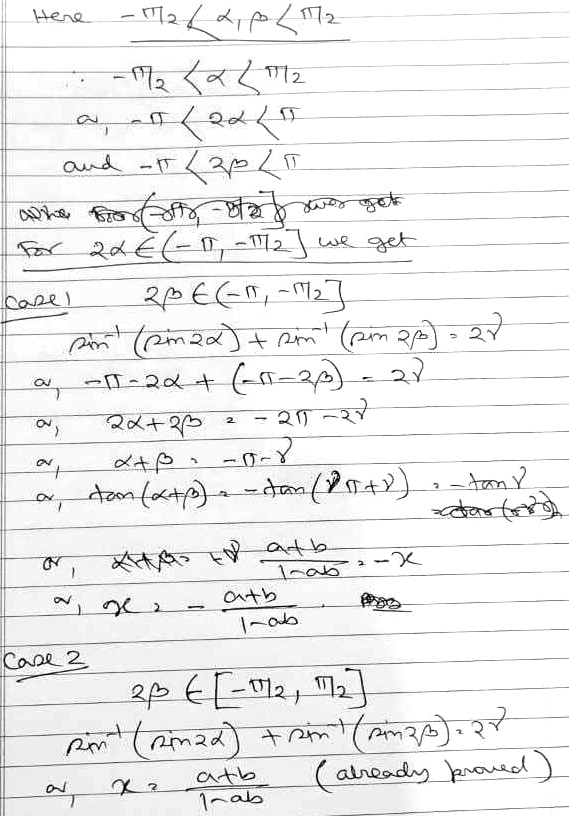 Here -π/2 < α, β < π/2
∴ -π/2 < α < π/2
or, -π < 2α < π
and -π < 2β < π
we get
For 2α ∈ (-π, -π/2] we get
Case 1 2β ∈ (-π, -π/2]
sin⁻¹(sin 2α) + sin⁻¹(sin 2β) = 2γ
or, -π - 2α + (-π - 2β) = 2γ
or, 2α + 2β = -2π - 2γ
or, α + β = -π - γ
or, tan(α + β) = -tan(π + γ) = -tan γ
or, (a+b)/(1-ab) = -x
or, x = -(a+b)/(1-ab).
Case 2
2β ∈ [-π/2, π/2]
sin⁻¹(sin 2α) + sin⁻¹(sin 2β) = 2γ
or, x = (a+b)/(1-ab) (already proved)